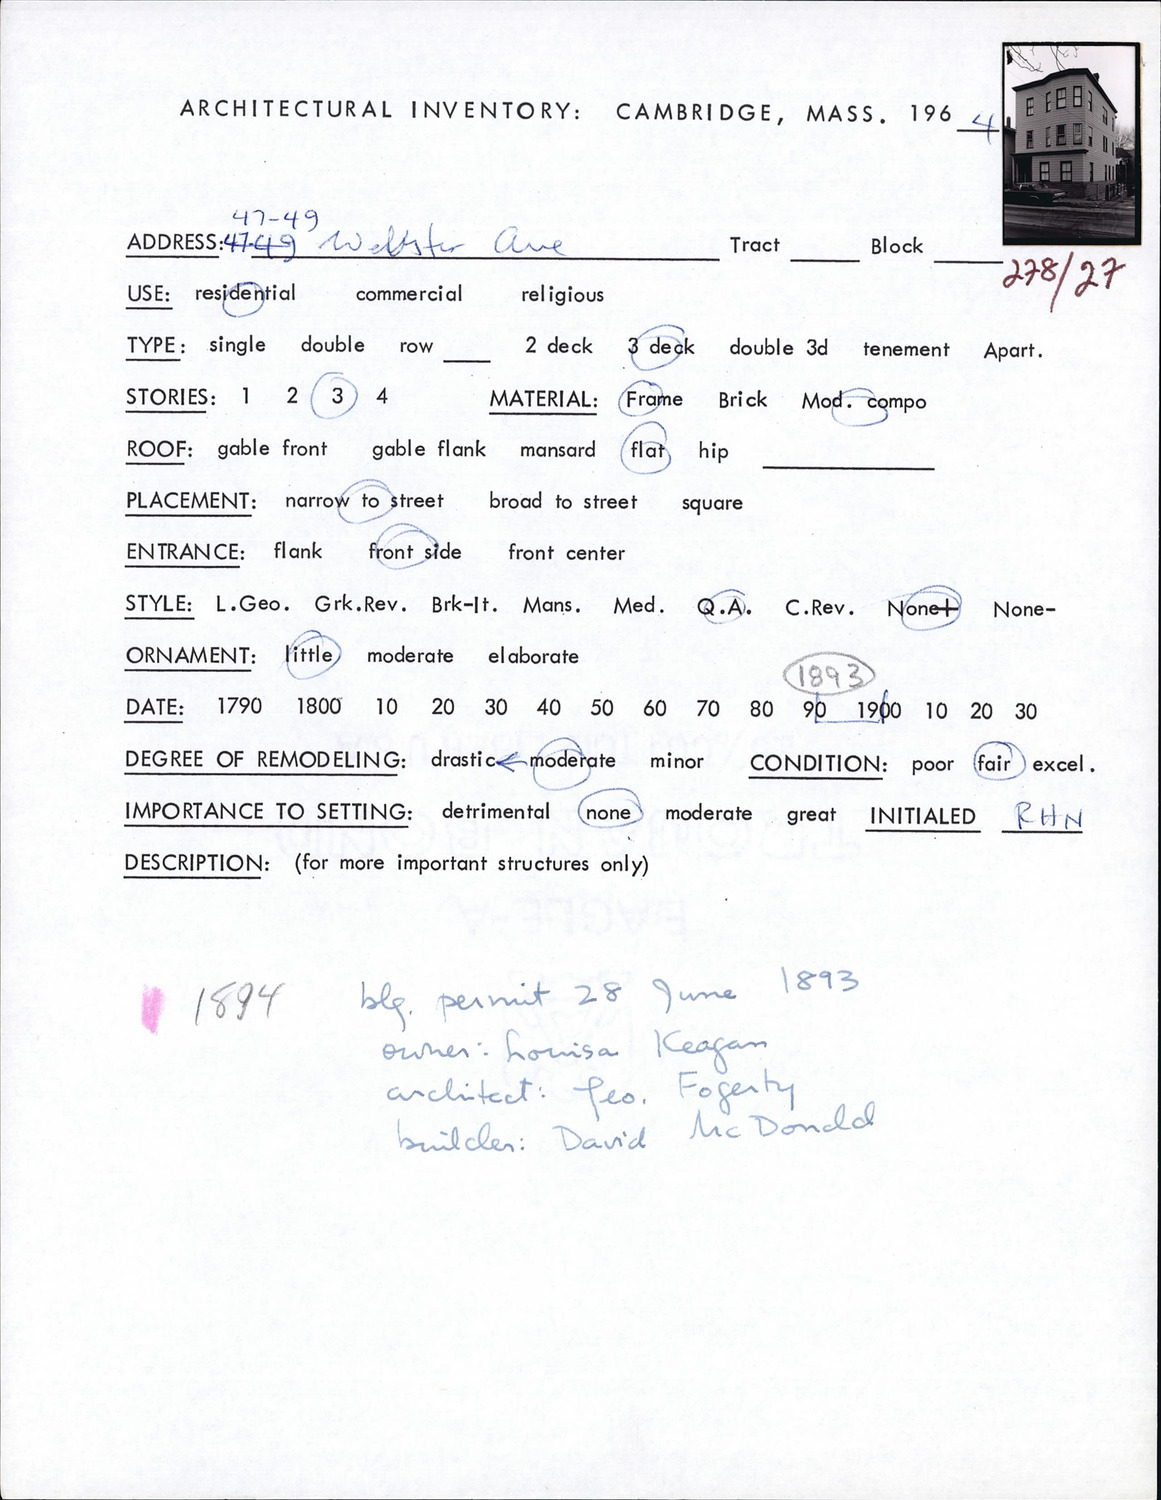 ARCHITECTURAL INVENTORY: CAMBRIDGE, MASS. 1964
47-49
ADDRESS: 47-49 Webster Ave Tract Block
278/27
USE: residential commercial religious
TYPE: single double row 2 deck 3 deck double 3d tenement Apart.
STORIES: 1 2 3 4 MATERIAL: Frame Brick Mod. compo
ROOF: gable front gable flank mansard flat hip
PLACEMENT: narrow to street broad to street square
ENTRANCE: flank front side front center
STYLE: L.Geo. Grk.Rev. Brk-It. Mans. Med. Q.A. C.Rev. None+ None-
ORNAMENT: little moderate elaborate
1893
DATE: 1790 1800 10 20 30 40 50 60 70 80 90 1900 10 20 30
DEGREE OF REMODELING: drastic moderate minor CONDITION: poor fair excel.
IMPORTANCE TO SETTING: detrimental none moderate great INITIALED RHN
DESCRIPTION: (for more important structures only)
1894 blg. permit 28 June 1893
owner: Louisa Keagan
architect: Geo. Fogerty
builder: David McDonald